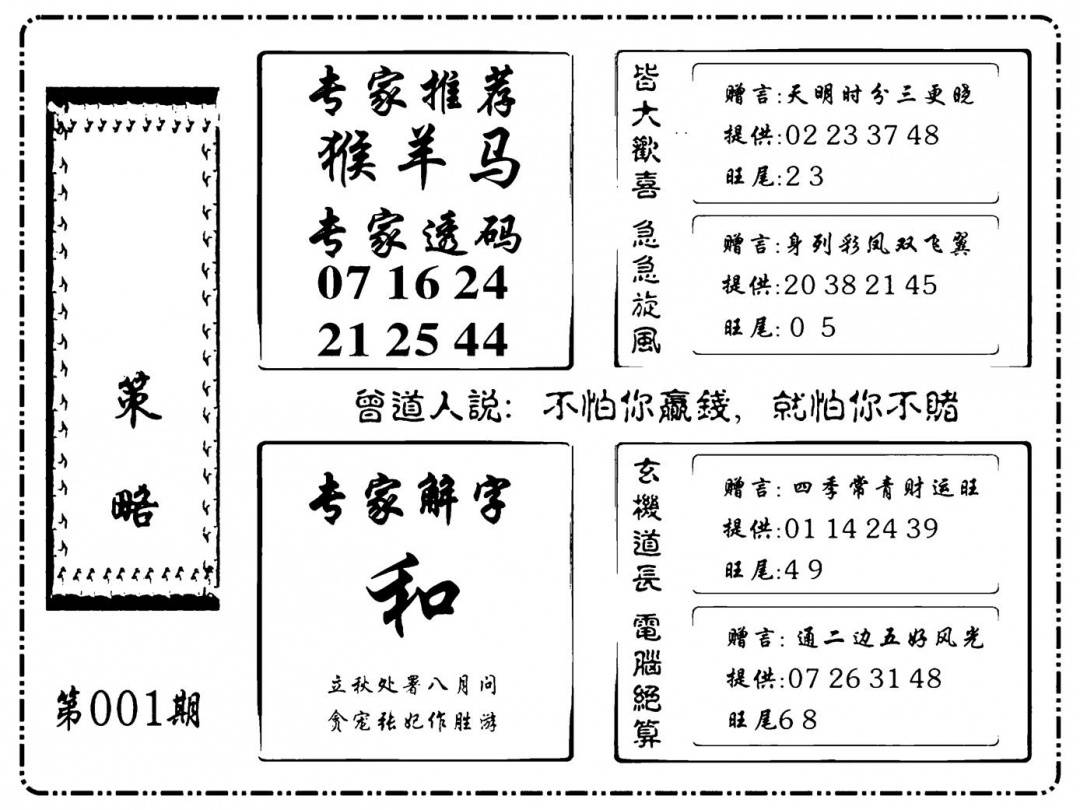 策略
第001期
专家推荐
猴羊马
专家透码
07 16 24
21 25 44
皆大歡喜
赠言:天明时分三更晓
提供:02 23 37 48
旺尾:2 3
急急旋風
赠言:身列彩凤双飞翼
提供:20 38 21 45
旺尾: 0 5
曾道人説: 不怕你贏錢, 就怕你不賭
专家解字
和
立秋处署八月问
贪宠张妃作胜游
玄機道長
赠言: 四季常青财运旺
提供:01 14 24 39
旺尾:4 9
電腦絕算
赠言: 通二边五好风光
提供:07 26 31 48
旺尾6 8